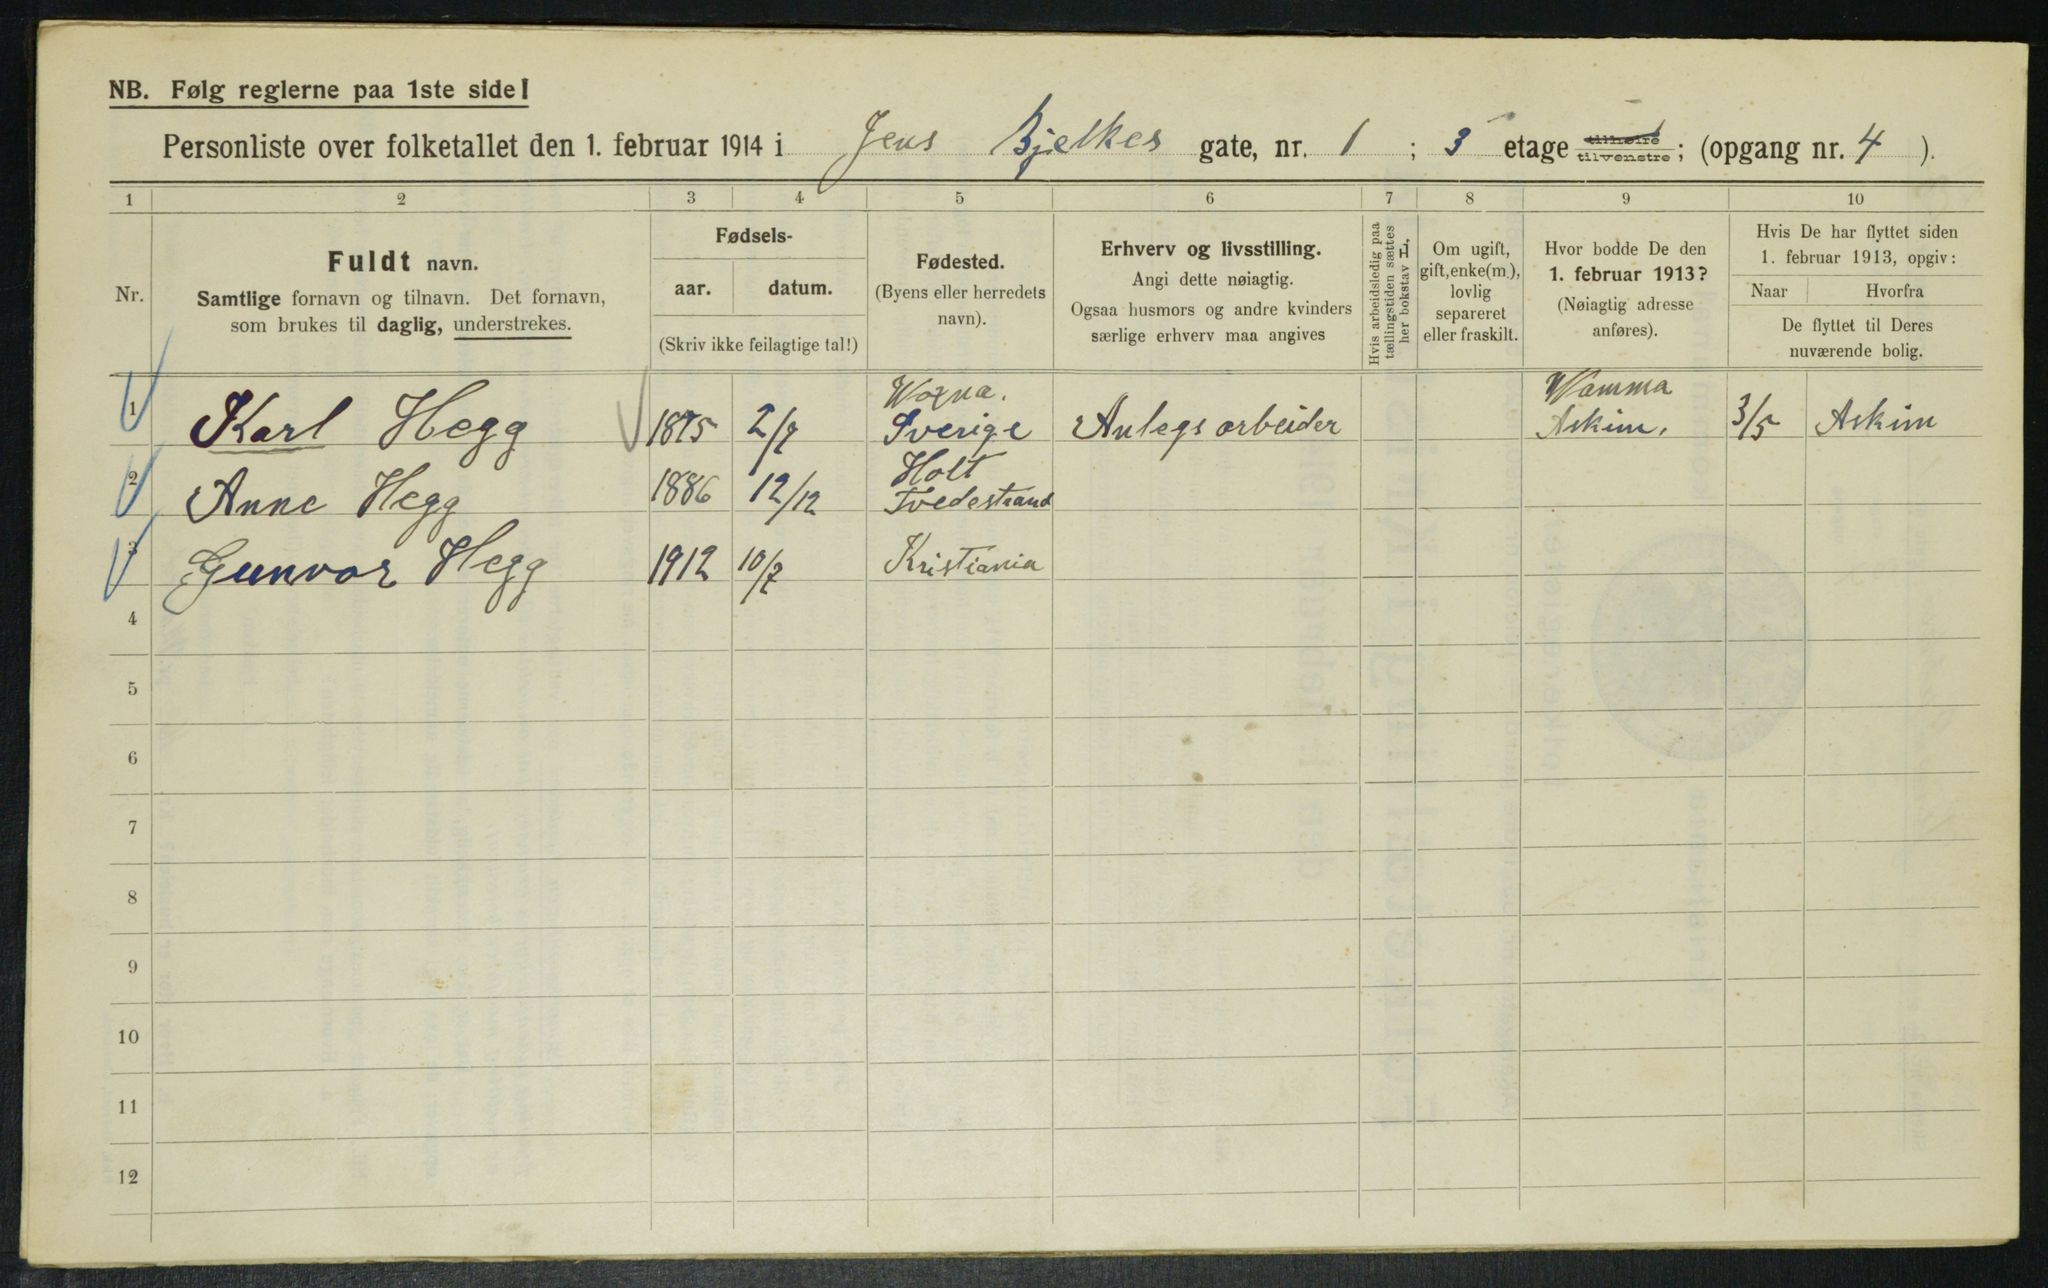 NB. Følg reglerne paa 1ste side!
Personliste over folketallet den 1. februar 1914 i Jens Bjelkes gate, nr. 1 ; 3 etage tilhøire tilvenstre ; (opgang nr. 4 ).
1 2 3 4 5 6 7 8 9 10
Nr.
Fuldt navn.
Samtlige fornavn og tilnavn. Det fornavn,
som brukes til daglig, understrekes.
Fødsels-
aar. datum.
(Skriv ikke feilagtige tal!)
Fødested.
(Byens eller herredets
navn).
Erhverv og livsstilling.
Angi dette nøiagtig.
Ogsaa husmors og andre kvinders
særlige erhverv maa angives
Hvis arbeidsledig paa
tællingstiden sættes
her bokstav L.
Om ugift,
gift, enke(m.),
lovlig
separeret
eller fraskilt.
Hvor bodde De den
1. februar 1913?
(Nøiagtig adresse
anføres).
Hvis De har flyttet siden
1. februar 1913, opgiv:
Naar Hvorfra
De flyttet til Deres
nuværende bolig.
Woxna. Wamma
1 Karl Hegg 1875 2/7 Sverige Anlegsarbeider Askim. 3/5 Askim
Holt
2 Anne Hegg 1886 12/12 Tvedestrand
3 Gunvor Hegg 1912 10/7 Kristiania
4
5
6
7
8
9
10
11
12